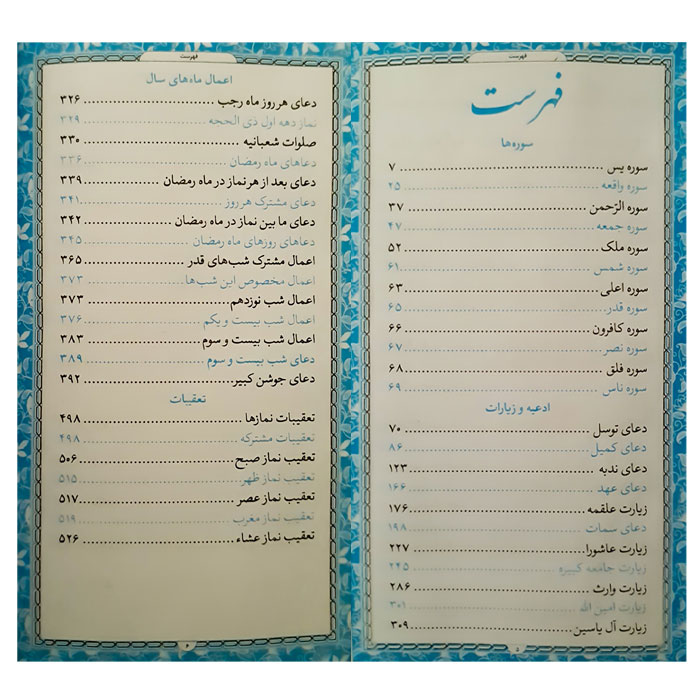 فهرست
فهرست
سوره‌ها
سوره یس ........ ۷
سوره واقعه ........ ۲۵
سوره الرّحمن ........ ۳۷
سوره جمعه ........ ۴۷
سوره ملک ........ ۵۲
سوره شمس ........ ۶۱
سوره اعلی ........ ۶۳
سوره قدر ........ ۶۵
سوره کافرون ........ ۶۶
سوره نصر ........ ۶۷
سوره فلق ........ ۶۸
سوره ناس ........ ۶۹
ادعیه و زیارات
دعای توسل ........ ۷۰
دعای کمیل ........ ۸۶
دعای ندبه ........ ۱۲۳
دعای عهد ........ ۱۶۶
زیارت علقمه ........ ۱۷۶
دعای سمات ........ ۱۹۸
زیارت عاشورا ........ ۲۲۷
زیارت جامعه کبیره ........ ۲۴۵
زیارت وارث ........ ۲۸۶
زیارت امین الله ........ ۳۰۱
زیارت آل یاسین ........ ۳۰۹
فهرست
اعمال ماه‌های سال
دعای هر روز ماه رجب ........ ۳۲۶
نماز دهه اول ذی الحجه ........ ۳۲۹
صلوات شعبانیه ........ ۳۳۰
دعاهای ماه رمضان ........ ۳۳۶
دعای بعد از هر نماز در ماه رمضان ........ ۳۳۹
دعای مشترک هر روز ........ ۳۴۱
دعای ما بین نماز در ماه رمضان ........ ۳۴۲
دعاهای روزهای ماه رمضان ........ ۳۴۵
اعمال مشترک شب‌های قدر ........ ۳۶۵
اعمال مخصوص این شب‌ها ........ ۳۷۳
اعمال شب نوزدهم ........ ۳۷۳
اعمال شب بیست و یکم ........ ۳۷۶
اعمال شب بیست و سوم ........ ۳۸۳
دعای شب بیست و سوم ........ ۳۸۹
دعای جوشن کبیر ........ ۳۹۲
تعقیبات
تعقیبات نمازها ........ ۴۹۸
تعقیبات مشترکه ........ ۴۹۸
تعقیب نماز صبح ........ ۵۰۶
تعقیب نماز ظهر ........ ۵۱۵
تعقیب نماز عصر ........ ۵۱۷
تعقیب نماز مغرب ........ ۵۱۹
تعقیب نماز عشاء ........ ۵۲۶